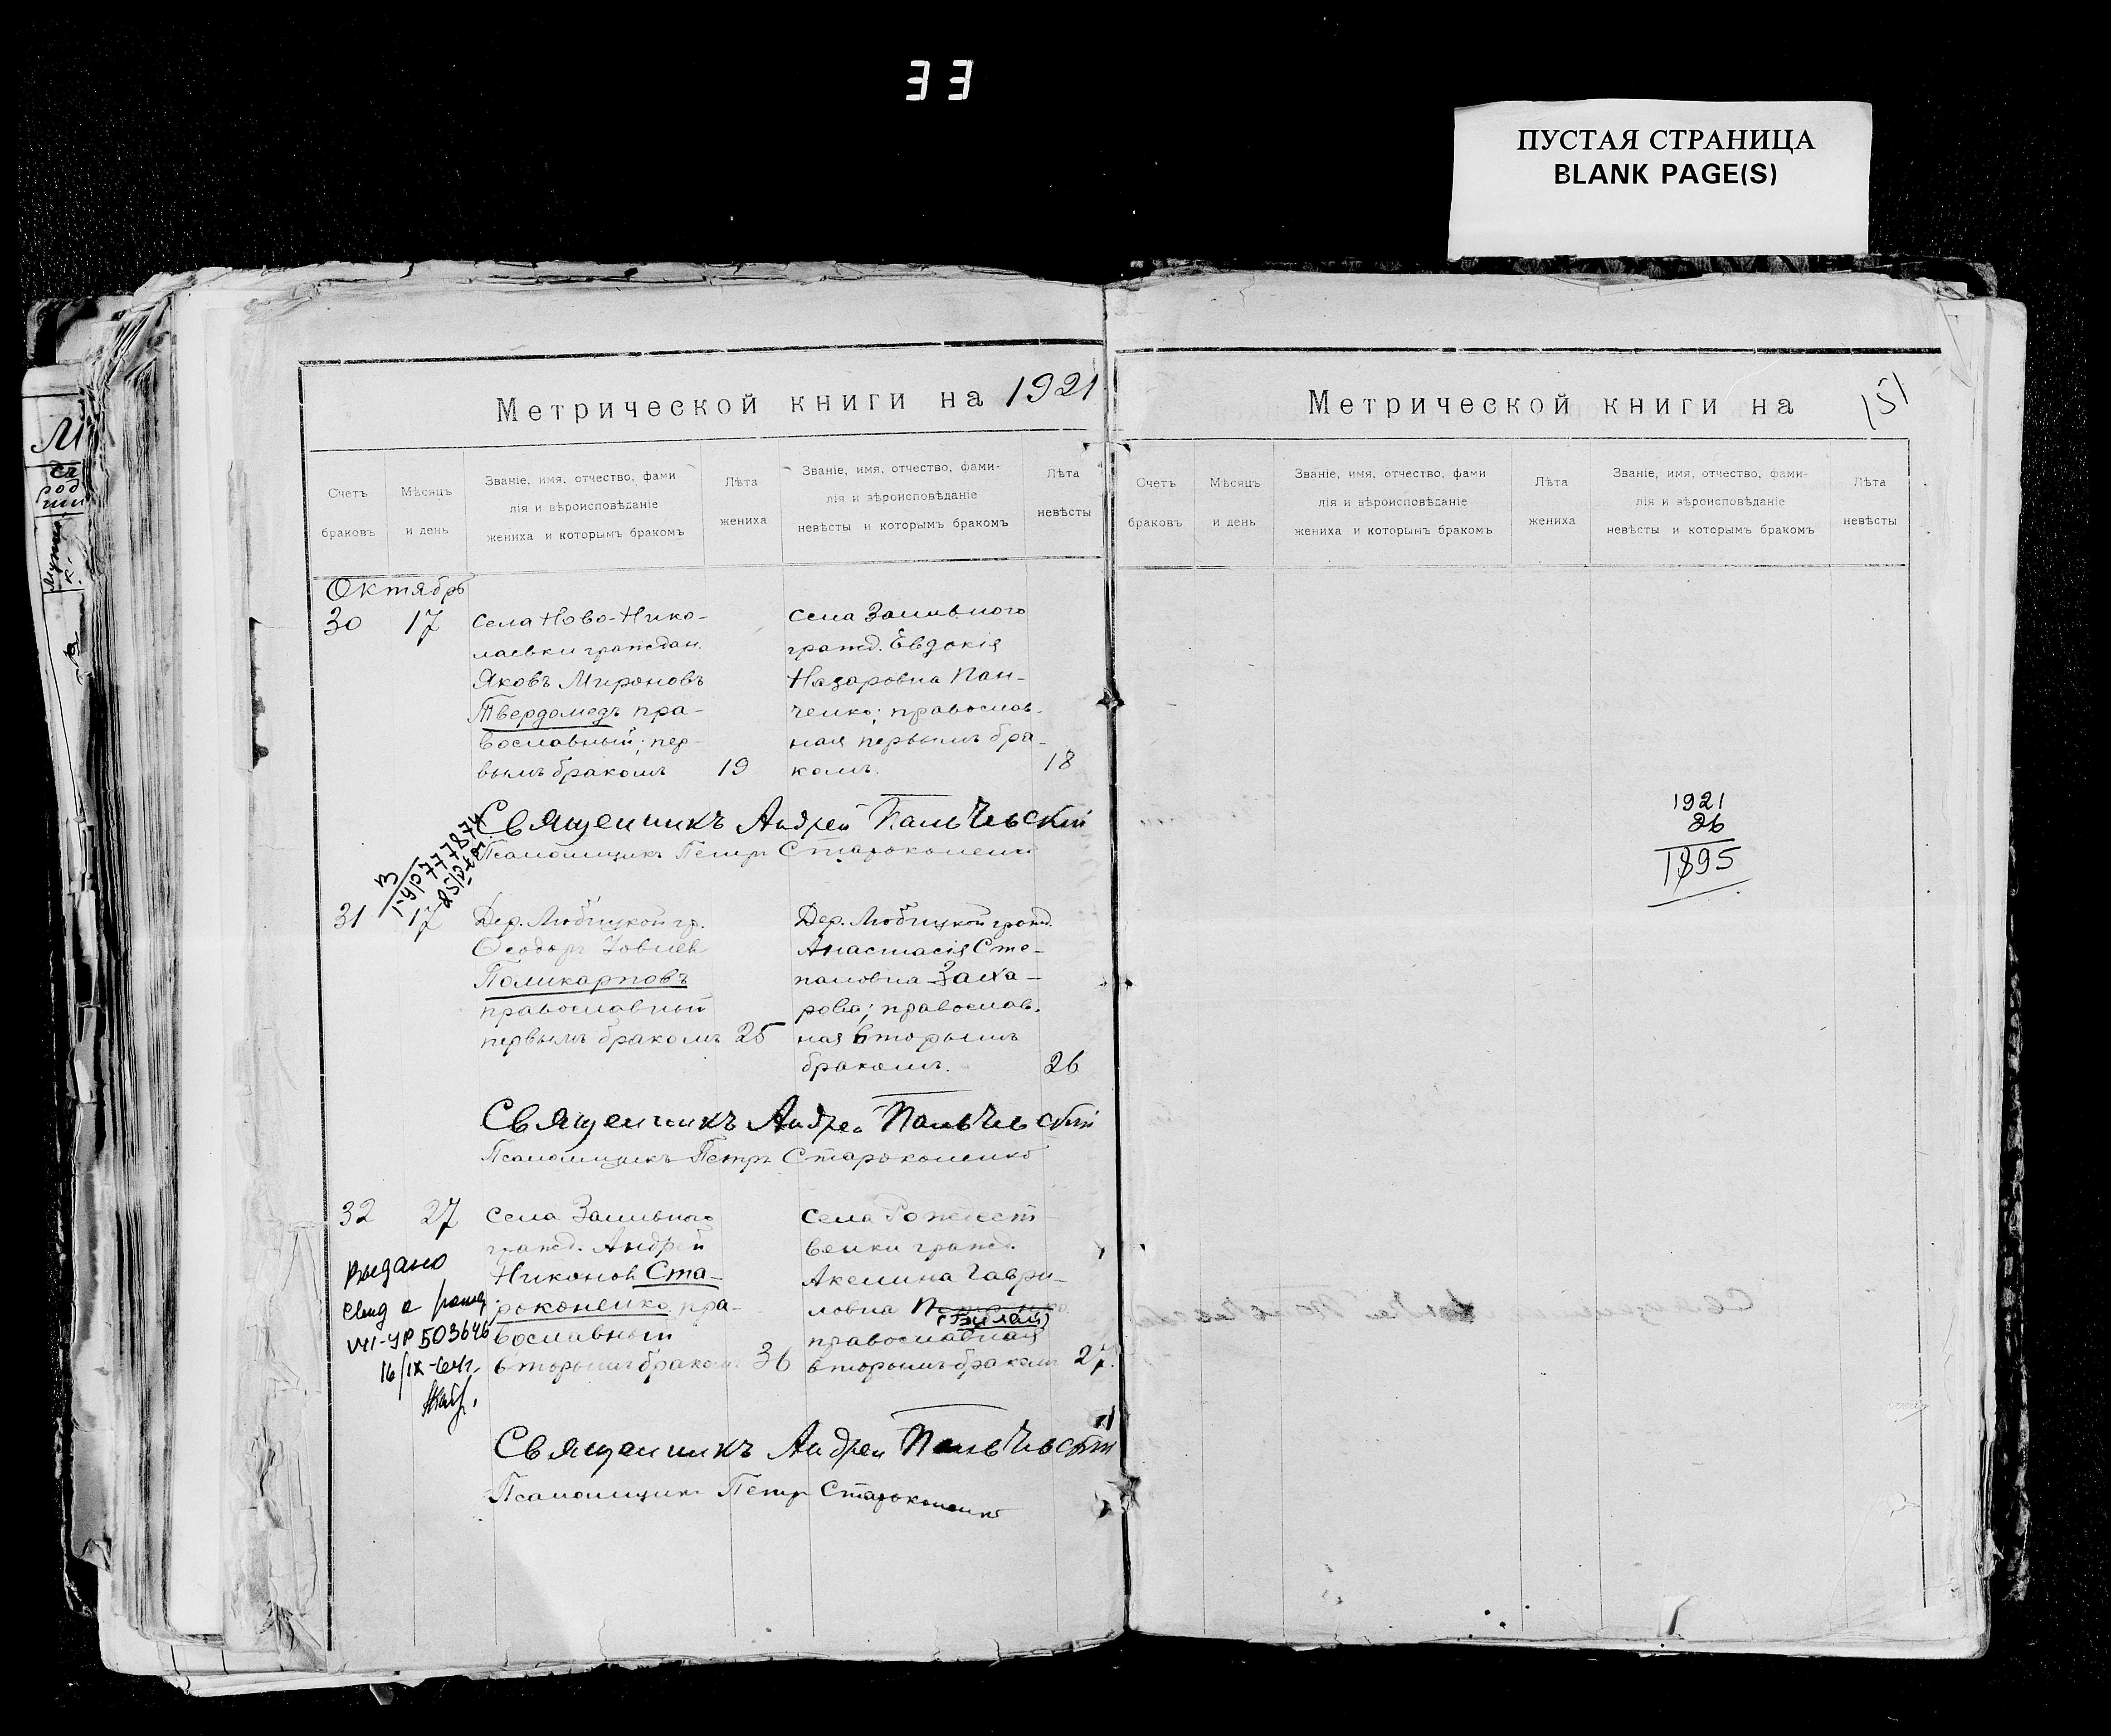 33
ПУСТАЯ СТРАНИЦА
BLANK PAGE(S)
Метрической книги на 1921
Счетъ браковъ
Мѣсяцъ и день
Званіе, имя, отчество, фами
лія и вѣроисповѣданіе
жениха и которымъ бракомъ
Лѣта жениха
Званіе, имя, отчество, фами-
лія и вѣроисповѣданіе
невѣсты и которымъ бракомъ
Лѣта невѣсты
Октябрь
30 17
села Ново-Нико-
лаевки граждан.
Яковъ Мироновъ
Твердомедъ пра-
вославный; пер-
вымъ бракомъ 19
села Заливного
гражд. Евдокія
Назаровна Пан-
ченко; православ-
ная первымъ бра-
комъ. 18
Священникъ Андрей
Псаломщикъ Петръ Староконенко
31 17
Дер. Любицкой гр.
Феодоръ
Поликарповъ
православный
первымъ бракомъ 25
Дер. Любицкой гражд.
Анастасія Сте-
пановна Заха-
рова; православ.
ная вторымъ
бракомъ. 26
Священникъ Андрей
Псаломщикъ Петръ Староконенко
32 27
Выдано
503646
села Заливного
гражд. Андрей
Никонов Ста-
роконенко, пра-
вославный
вторымъ браком 36
села Рождест
венки гражд.
Акелина Гаври-
ловна
православная
вторымъ браком 27.
Священникъ Андрей
Псаломщикъ Петр Староконенко
Метрической книги на
151
Счетъ браковъ
Мѣсяцъ и день
Званіе, имя, отчество, фами
лія и вѣроисповѣданіе
жениха и которымъ бракомъ
Лѣта жениха
Званіе, имя, отчество, фами-
лія и вѣроисповѣданіе
невѣсты и которымъ бракомъ
Лѣта невѣсты
1921
26
1895